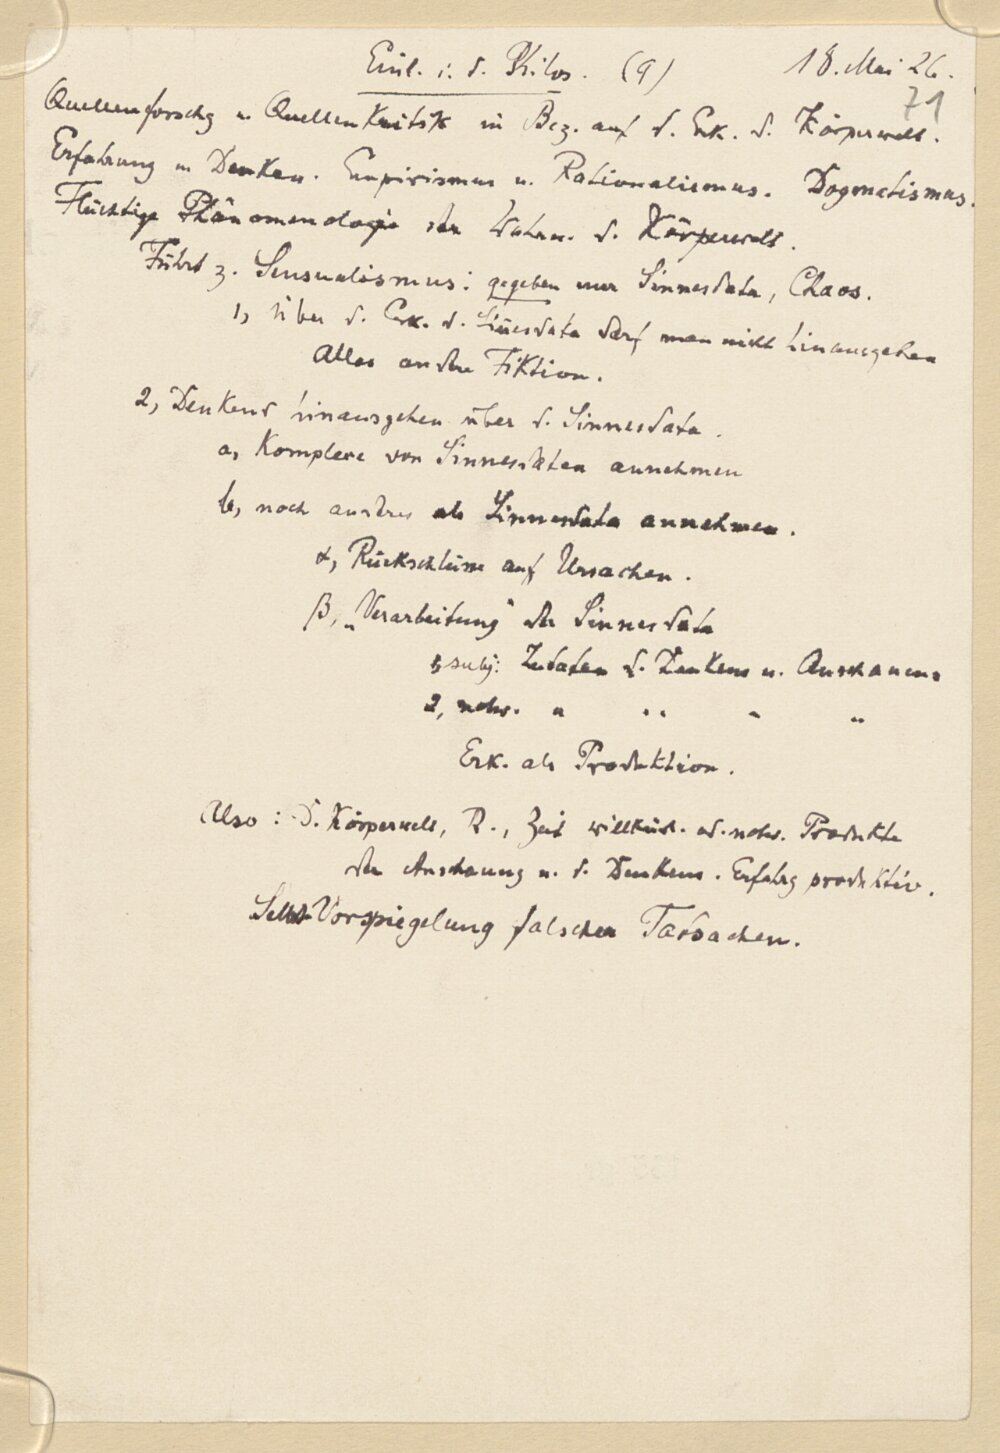 Einl. i. d. Philos. (9) 18. Mai 26.
71
Quellenforschg u. Quellenkritik in Bez. auf d. Erk. d. Körperwelt.
Erfahrung u. Denken. Empirismus u. Rationalismus. Dogmatismus.
Flüchtige Phänomenologie der Wahrn. d. Körperwelt.
Führt z. Sensualismus: gegeben nur Sinnesdata, Chaos.
1, Über d. Erk. d. Sinnesdata darf man nicht hinausgehen
Alles andre Fiktion.
2, Denkend hinausgehen über d. Sinnesdata.
a, Komplexe von Sinnesdaten annehmen
b, noch andres als Sinnesdata annehmen.
α, Rückschlüsse auf Ursachen.
β, „Verarbeitung" der Sinnesdata
1, subj: Zutaten d. Denkens u. Anschauens
2, notw. " " " "
Erk. als Produktion.
Also: D. Körperwelt, R., Zeit willkürl. od. notw. Produkte
der Anschauung u. d. Denkens. Erfahrg produktiv.
Selbst-Vorspiegelung falscher Tatsachen.